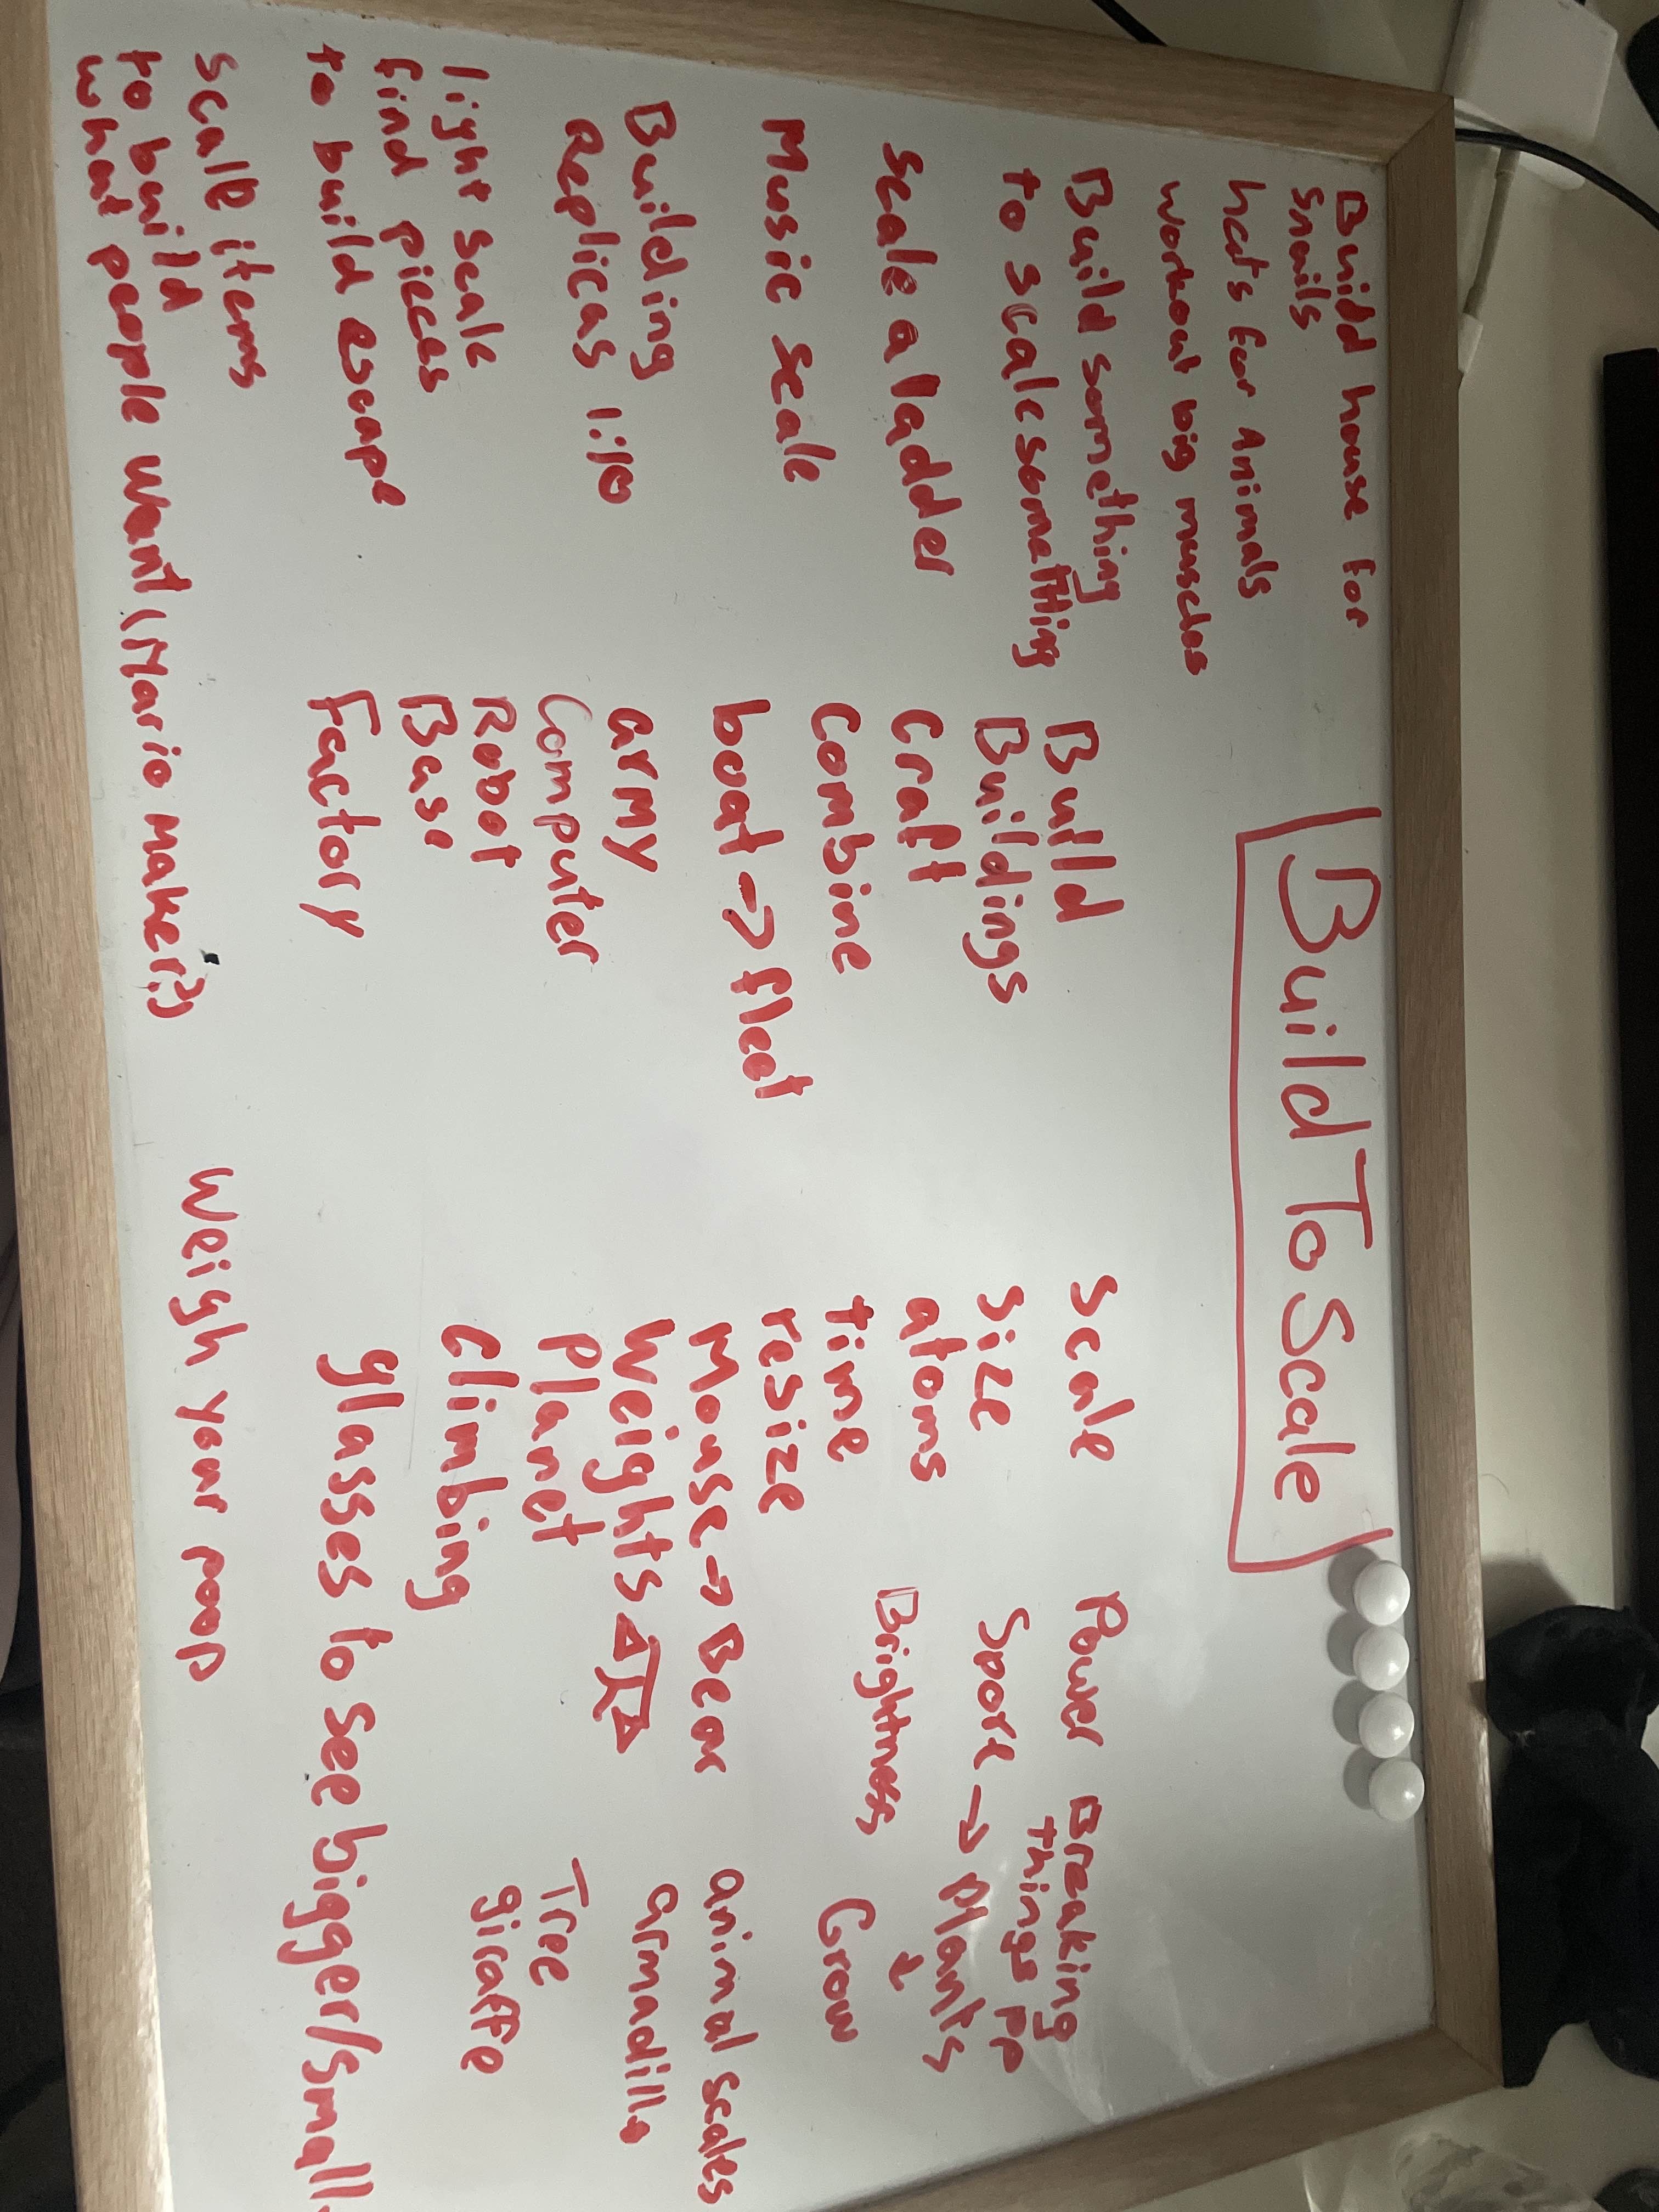 Build To Scale
Build house for
Snails
hats for Animals
workout big muscles
Build something
to scale something
Scale a ladder
Music Scale
Building
Replicas 1:10
light scale
find pieces
to build escape
Scale items
to build
what people want (Mario Maker?)
Build
Buildings
Craft
Combine
boat -> fleet
army
Computer
Robot
Base
Factory
Scale
Size
atoms
time
resize
Mouse -> Bear
Weights
Planet
Climbing
glasses to see bigger/small
Weigh your poop
Power
Spore -> Plants
Brightness
Breaking
things pp
Grow
animal scales
armadillo
Tree
giraffe